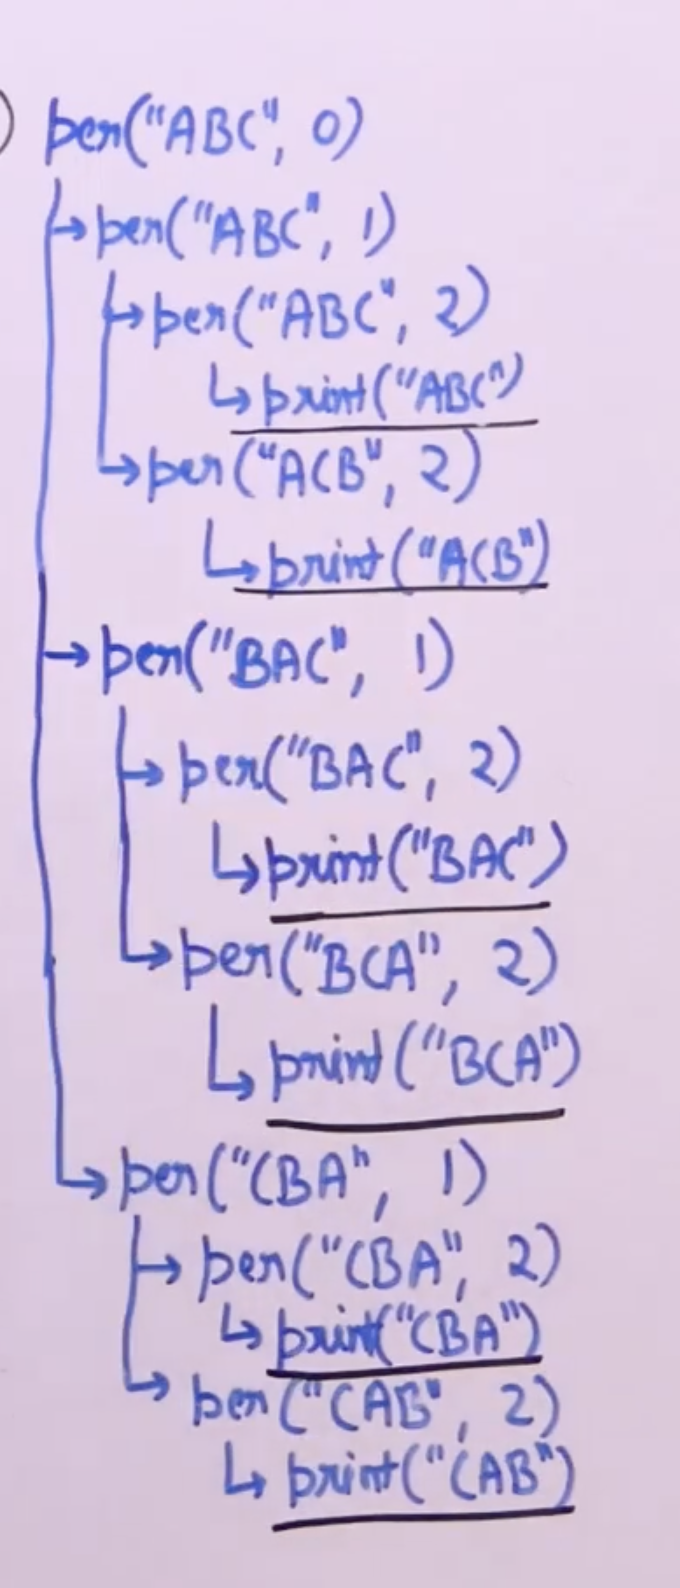 per("ABC", 0)
per("ABC", 1)
per("ABC", 2)
print("ABC")
per("ACB", 2)
print("ACB")
per("BAC", 1)
per("BAC", 2)
print("BAC")
per("BCA", 2)
print("BCA")
per("CBA", 1)
per("CBA", 2)
print("CBA")
per("CAB", 2)
print("CAB")